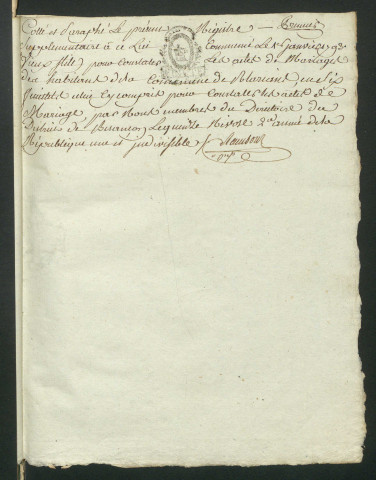 Cotté et Paraphé Le présent Registre
Suplementaire à ce Lui Commencé Le 1er Janvier 93
pour Constater Les actes de Mariages
des habitans de la Commune de
feuillets celui cy compris pour Constater Les actes de
Mariage, par Nous membres du Directoire du
District de Besançon Le Nivose 2e année de la
République une et indivisible